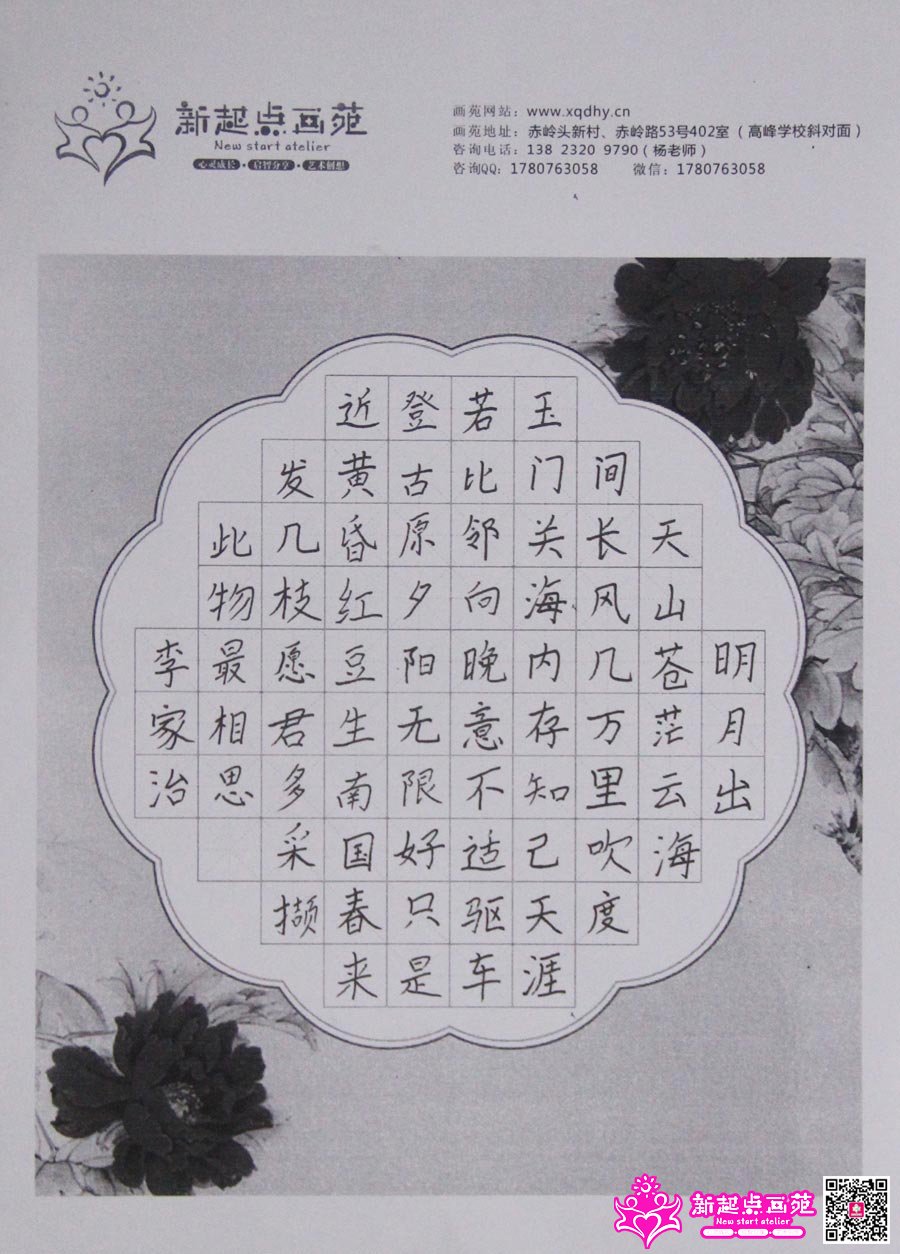 新起点画苑
New start atelier
心灵成长·启智分享·艺术创想
画苑网站：www.xqdhy.cn
画苑地址：赤岭头新村、赤岭路53号402室（高峰学校斜对面）
咨询电话：138 2320 9790（杨老师）
咨询QQ：1780763058 微信：1780763058
明月出
天山苍茫云海
间长风几万里吹度
玉门关海内存知己天涯
若比邻向晚意不适驱车
登古原夕阳无限好只是
近黄昏红豆生南国春来
发几枝愿君多采撷
此物最相思
李家治
新起点画苑
New start atelier